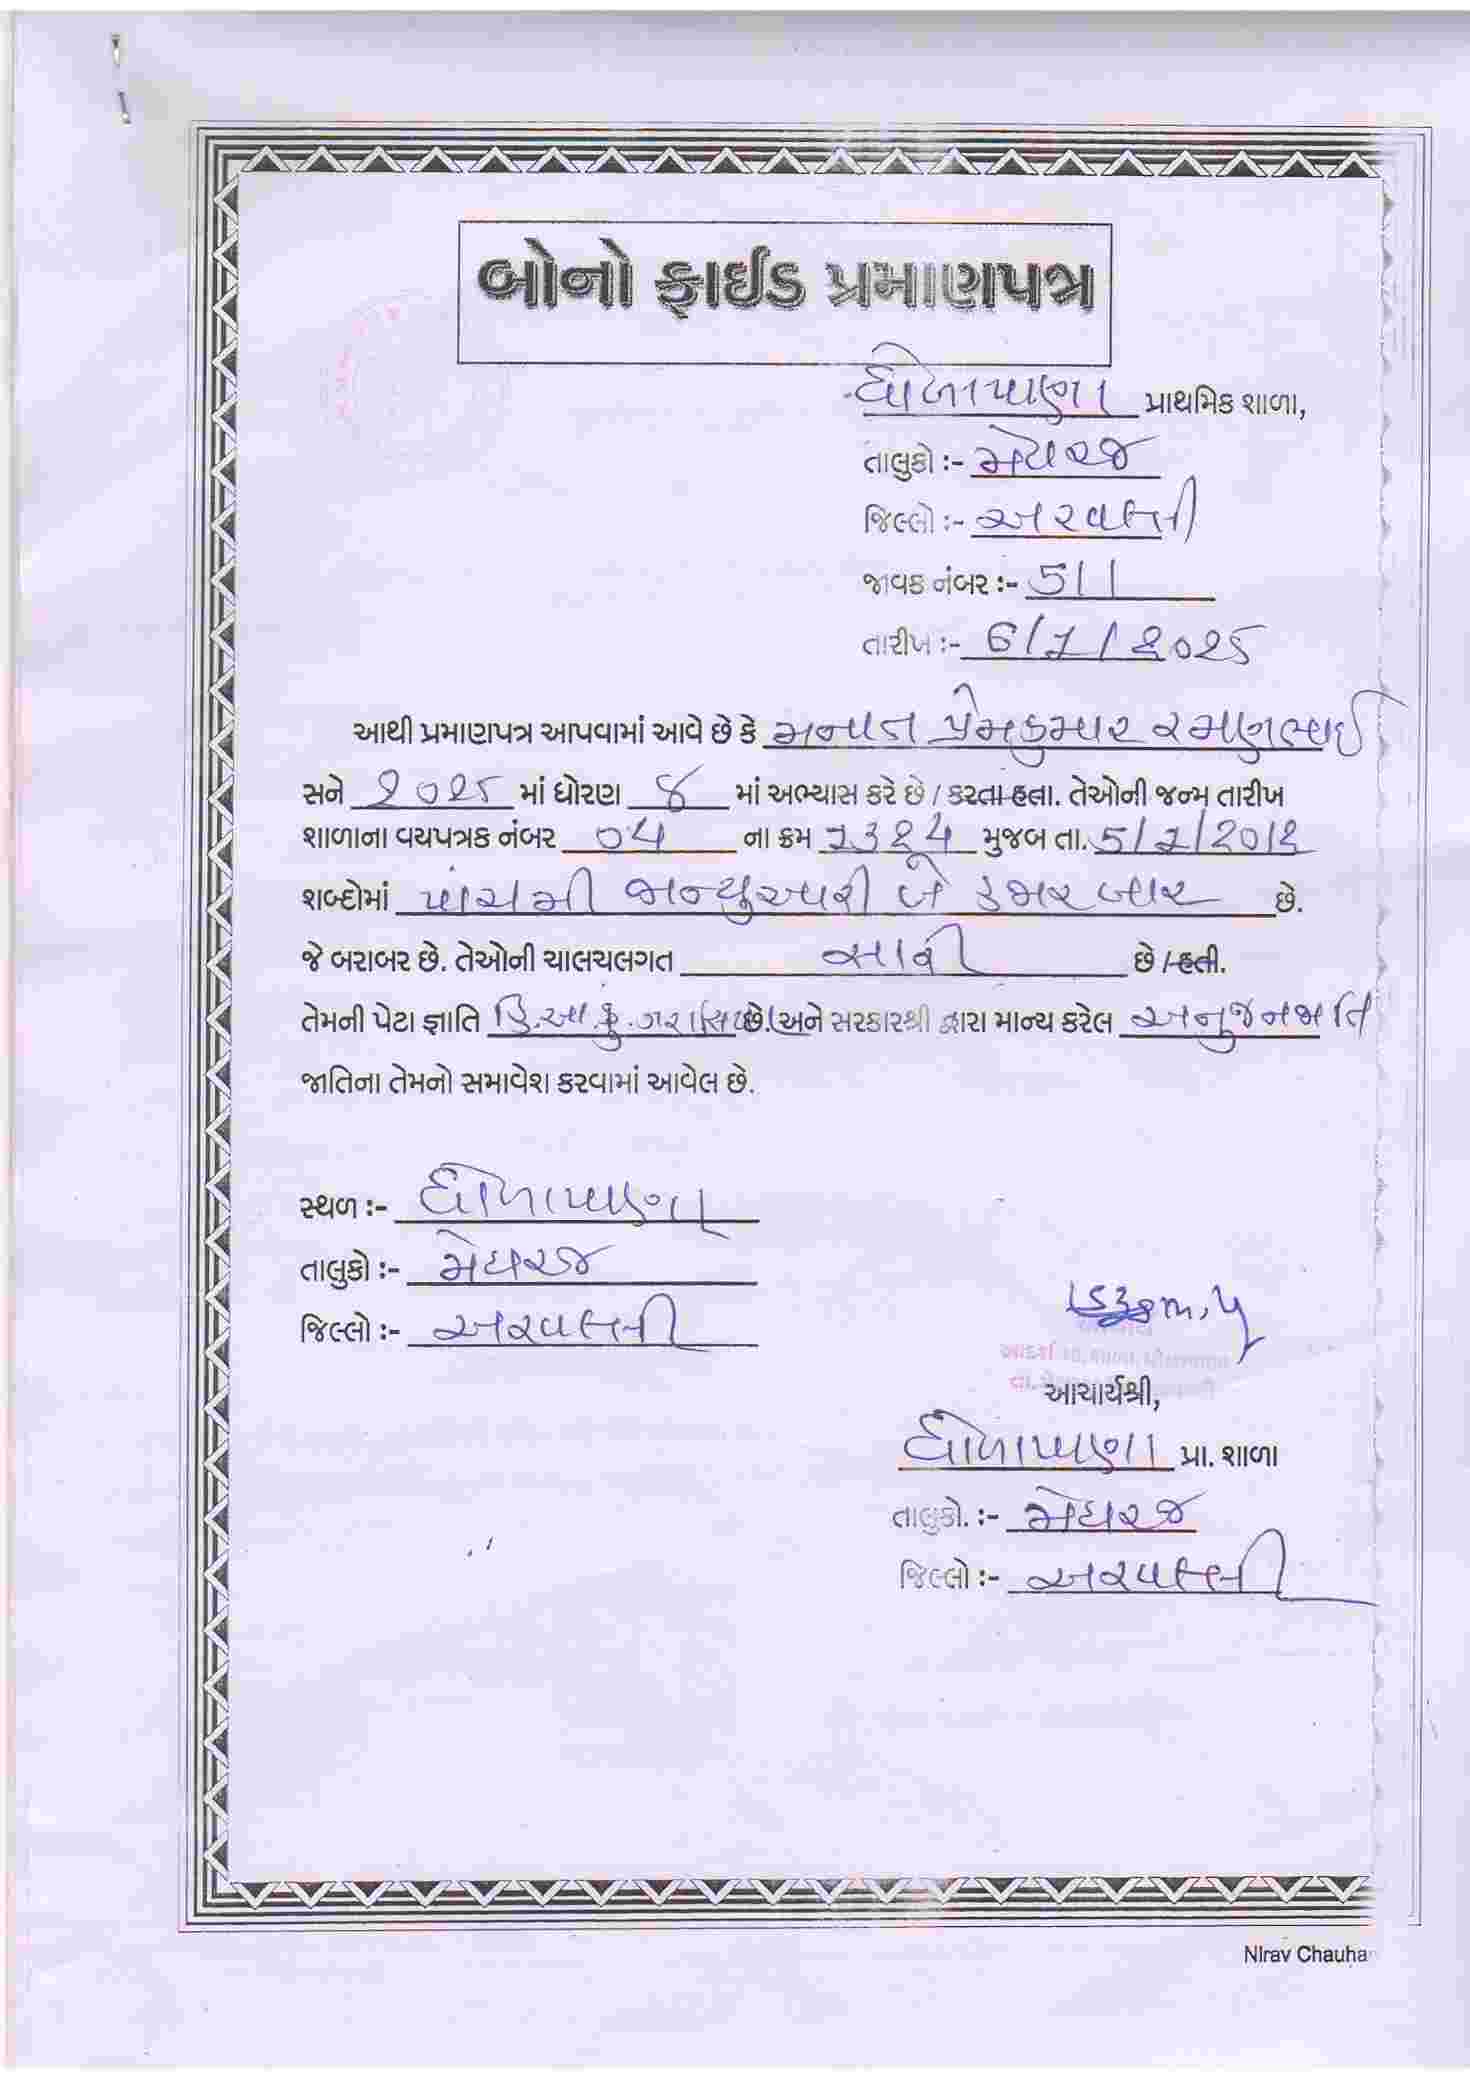 બોનો ફાઈડ પ્રમાણપત્ર
ધોળાપાણા પ્રાથમિક શાળા,
તાલુકો :- મેઘરજ
જિલ્લો :- અરવલ્લી
જાવક નંબર :- 511
તારીખ :- 6/1/૨૦૨૫
આથી પ્રમાણપત્ર આપવામાં આવે છે કે મનાત પ્રેમકુમાર રમણભાઈ
સને ૨૦૨૫ માં ધોરણ ૪ માં અભ્યાસ કરે છે / કરતા હતા. તેઓની જન્મ તારીખ
શાળાના વયપત્રક નંબર ૦4 ના ક્રમ મુજબ તા. 5/1/૨૦૧૨
શબ્દોમાં પાંચમી જાન્યુઆરી બે હજાર બાર છે.
જે બરાબર છે. તેઓની ચાલચલગત સારી છે / હતી.
તેમની પેટા જ્ઞાતિ હિ.આ.ડું.ગરાસિયા છે. અને સરકારશ્રી દ્વારા માન્ય કરેલ અનુજનજાતિ
જાતિના તેમનો સમાવેશ કરવામાં આવેલ છે.
સ્થળ :- ધોળાપાણા
તાલુકો :- મેઘરજ
જિલ્લો :- અરવલ્લી
આચાર્યશ્રી,
ધોળાપાણા પ્રા. શાળા
તાલુકો. :- મેઘરજ
જિલ્લો :- અરવલ્લી
Nirav Chauha